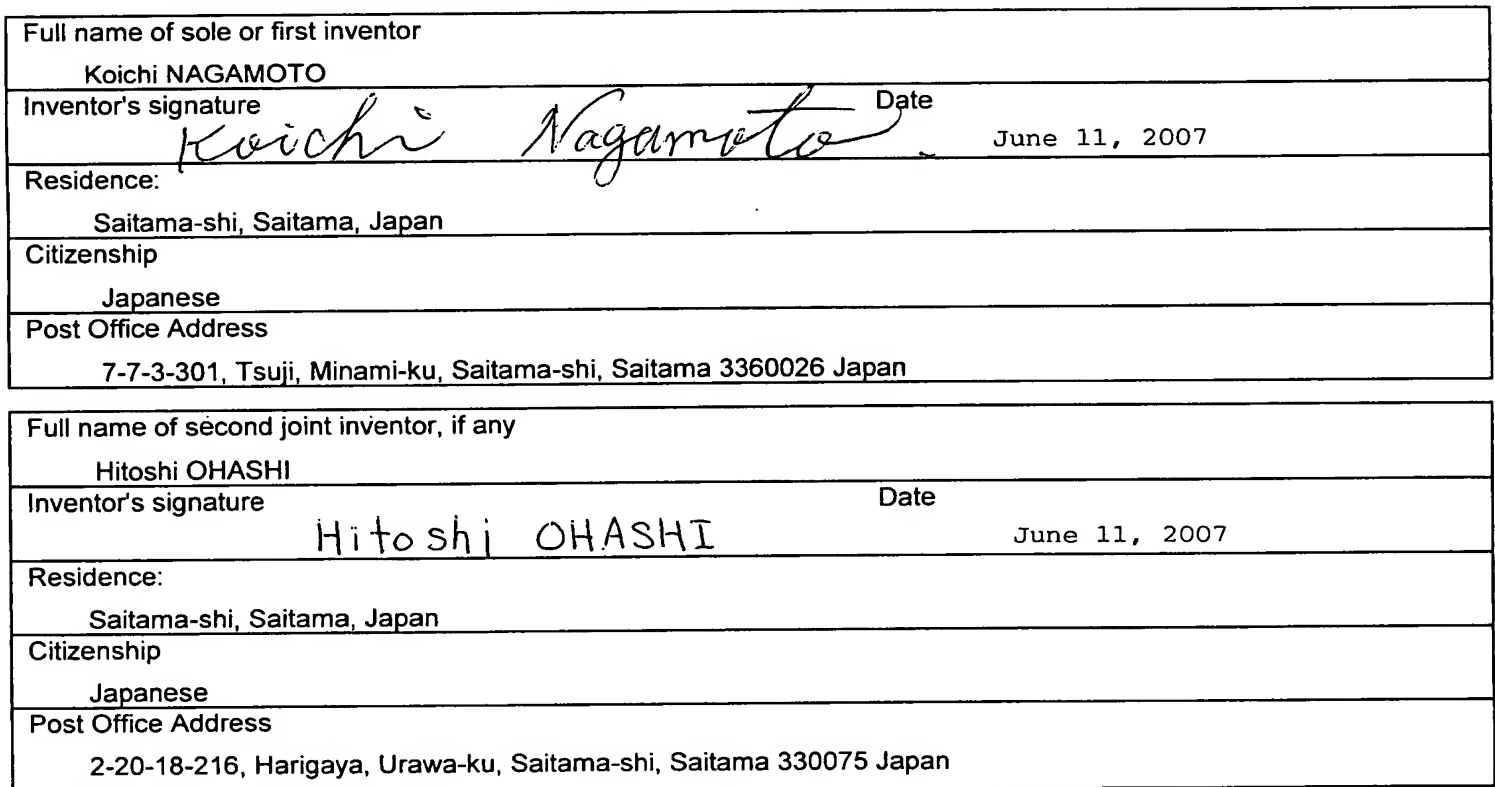 Full name of sole or first inventor
Koichi NAGAMOTO
Inventor's signature Koichi Nagamoto. Date June 11, 2007
Residence:
Saitama-shi, Saitama, Japan
Citizenship
Japanese
Post Office Address
7-7-3-301, Tsuji, Minami-ku, Saitama-shi, Saitama 3360026 Japan
Full name of second joint inventor, if any
Hitoshi OHASHI
Inventor's signature Date
Hitoshi OHASHI June 11, 2007
Residence:
Saitama-shi, Saitama, Japan
Citizenship
Japanese
Post Office Address
2-20-18-216, Harigaya, Urawa-ku, Saitama-shi, Saitama 330075 Japan